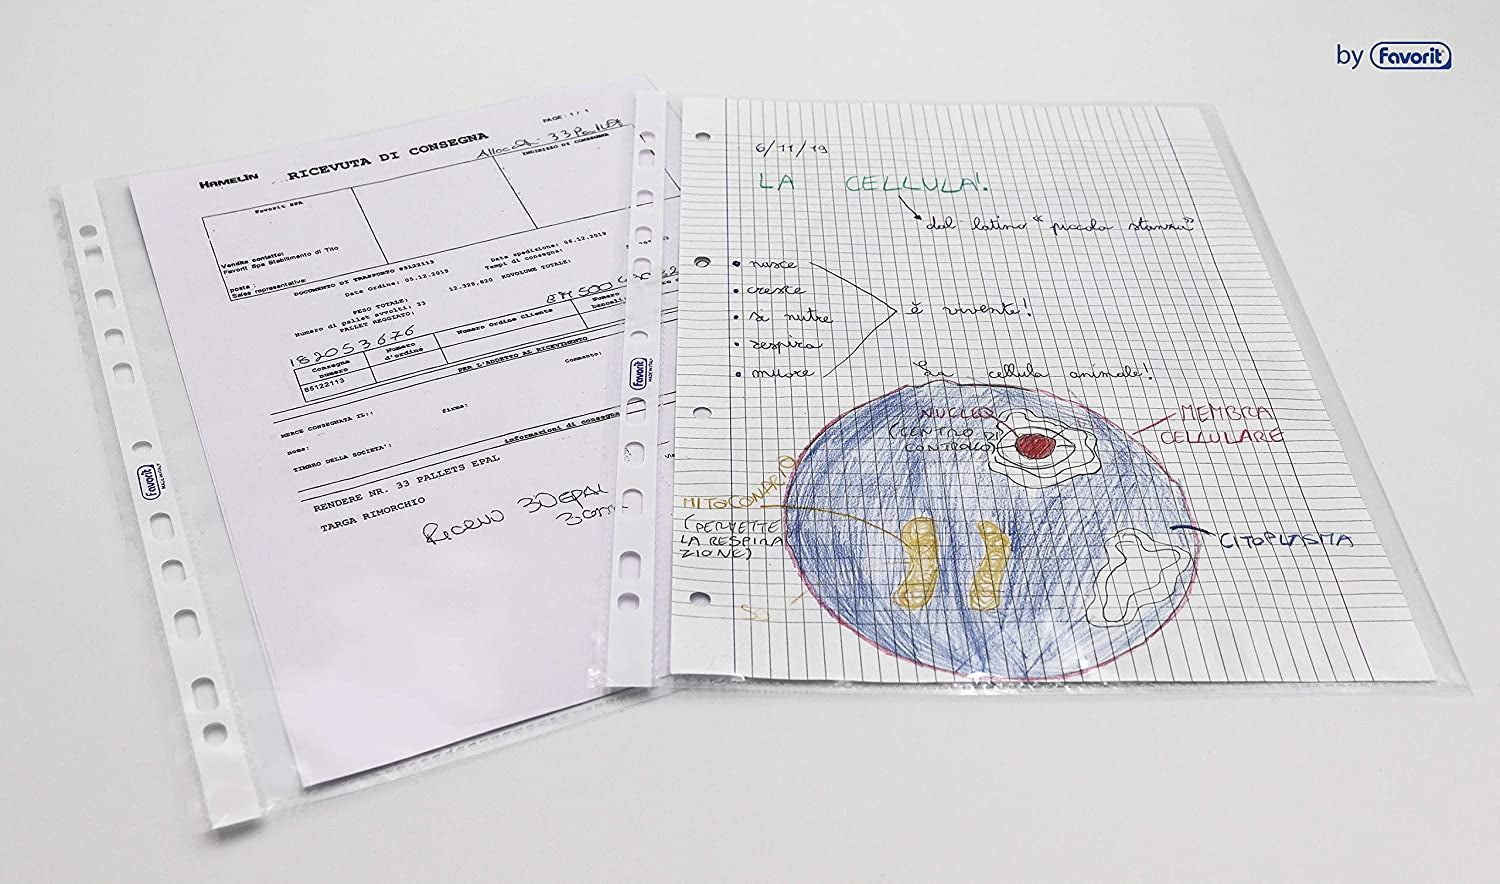 by Favorit
PAGE: 1 / 1
HAMELIN
RICEVUTA DI CONSEGNA
33 Pallet
INDIRIZZO DI CONSEGNA
Favorit SPA
Vendite contatto:
Favorit Spa Stabilimento di Tito
posta :
Sales representative:
DOCUMENTO DI TRASPORTO 85122113
Data Ordine: 05.12.2019
Data spedizione: 06.12.2019
Tempi di consegna:
PESO TOTALE:
12.320,820 KGVOLUME TOTALE:
Numero di pallet avvolti: 33
PALLET REGGIATO:
182053676
Consegna
numero
Numero
d'ordine
Numero Ordine cliente
Numero
85122113
PER L'ADDETTO AL RICEVIMENTO
Commento:
MERCE CONSEGNATA IL::
firma:
nome:
TIMBRO DELLA SOCIETA':
informazioni di consegna
RENDERE NR. 33 PALLETS EPAL
TARGA RIMORCHIO
30 EPAL
Favorit
MADE IN ITALY
Favorit
MADE IN ITALY
6/11/19
LA CELLULA!
dal latino "piccola stanza"
• nasce
• cresce
• si nutre
• respira
• muore
è vivente!
La cellula animale!
NUCLEO
(CENTRO DI
CONTROLLO)
MEMBRA
CELLULARE
MITOCONDRIO
(PERMETTE
LA RESPIRA
ZIONE)
CITOPLASMA